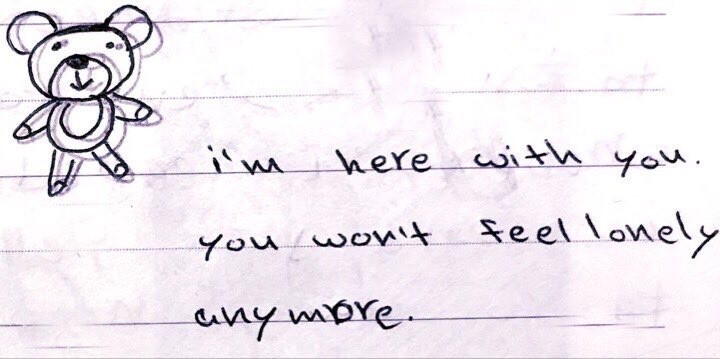 i'm here with you.
you won't feel lonely
anymore.